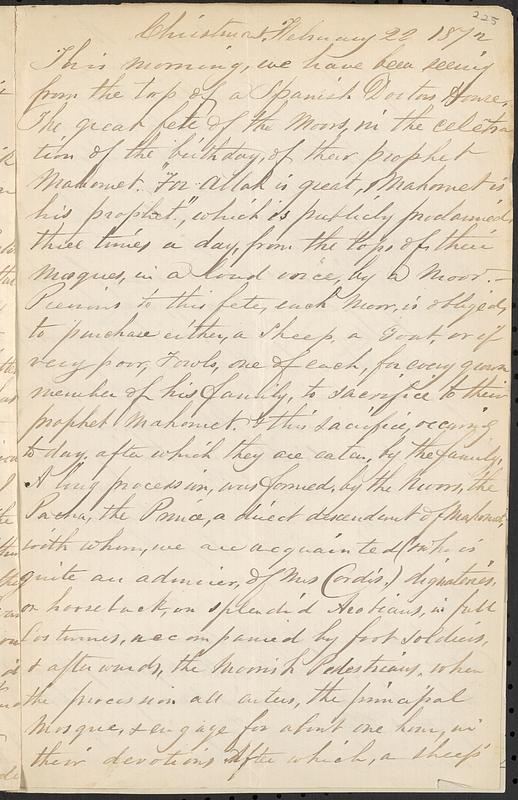 225
Christmas. February 22 1872
This morning, we have been seeing
from the top of a Spanish Doctors House,
The great fete of the Moors, in the celebra
tion of the birthday, of their prophet
Mahomet. "For Allah is great, Mahomet is
his prophet", which is publicly proclaimed
three times a day, from the tops of their
Mosques, in a loud voice, by a Moor. -
Previous to this fete, each Moor, is obliged,
to purchase either, a Sheep, a Goat, or if
very poor, Fowls, one of each, for every grown
member of his family, to sacrifice to their
prophet Mahomet. & this sacrifice, occuring
to day, after which they are eaten, by the family,
A long procession, was formed, by the Moors, the
Pacha, the Prince, a direct descendent of Mahomet,
with whom, we are acquainted (& who is
quite an admirer, of Mrs Cordis.) dignatories,
on horseback, on splendid Arabians, in full
Costumes, accompanied by foot soldiers,
& afterwards, the Moorish Pedestrians, when
the procession all enters, the principal
Mosque, & engage for about one hour, in
their devotions After which, a sheep